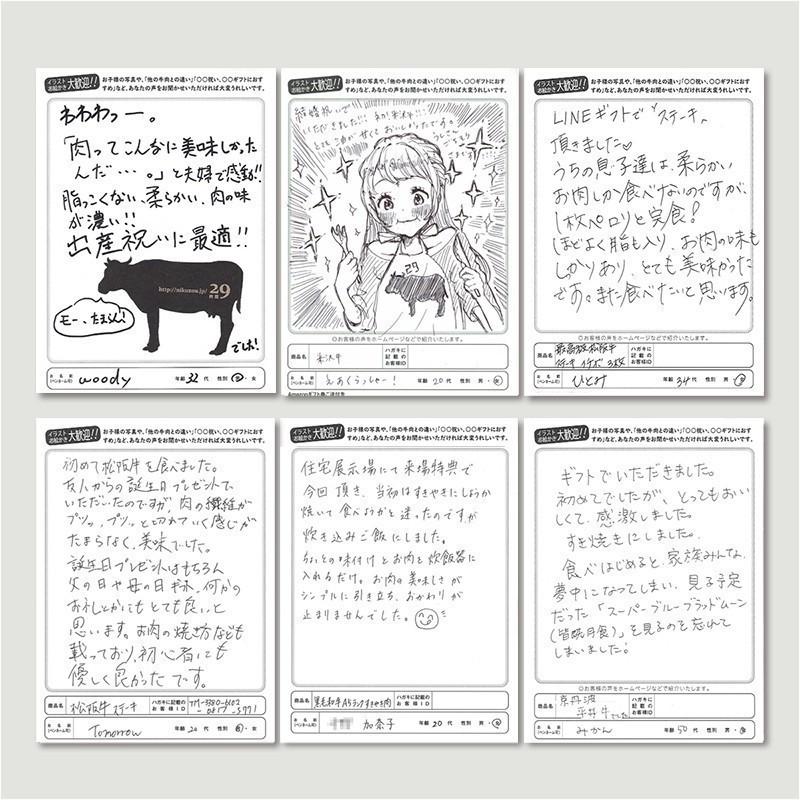 イラスト
お絵かき 大歓迎!!
お子様の写真や、「他の牛肉との違い」「〇〇祝い、〇〇ギフトにおす
すめ」など、あなたの声をお聞かせいただければ大変うれしいです。
わわわっー。
「肉ってこんなに美味しかった
んだ…。」と夫婦で感動!!
脂っこくない、柔らかい、肉の味
が濃い!!
出産祝いに最適!!
http://nikuzou.jp/ 29
モー、たまらん!
でした!
お名前
(ペンネーム可) woody 年齢 32 代 性別 男・女
イラスト
お絵かき 大歓迎!!
お子様の写真や、「他の牛肉との違い」「〇〇祝い、〇〇ギフトにおす
すめ」など、あなたの声をお聞かせいただければ大変うれしいです。
結婚祝いで
いただきました!!!
とても油が甘くておいしかったです。
29
〇お客様の声をホームページなどで紹介いたします。
商品名 米沢牛 ハガキに記載のお客様ID
お名前
(ペンネーム可) えあくらっしゃー! 年齢 20 代 性別 男・女
イラスト
お絵かき 大歓迎!!
お子様の写真や、「他の牛肉との違い」「〇〇祝い、〇〇ギフトにおす
すめ」など、あなたの声をお聞かせいただければ大変うれしいです。
LINEギフトで"ステーキ"
頂きました♡
うちの息子達は、柔らかい
お肉しか食べないのですが、
1枚ペロリと完食!
ほどよく脂も入り、お肉の味も
しっかりあり、とても美味かった
です。また食べたいと思います。
〇お客様の声をホームページなどで紹介いたします。
商品名 最高級松阪牛
ステーキ イチボ 3枚
ハガキに記載のお客様ID
お名前
(ペンネーム可) ひとみ 年齢 34 代 性別 男・女
イラスト
お絵かき 大歓迎!!
お子様の写真や、「他の牛肉との違い」「〇〇祝い、〇〇ギフトにおす
すめ」など、あなたの声をお聞かせいただければ大変うれしいです。
初めて松阪牛を食べました。
友人からの誕生日プレゼントで
いただいたのですが、肉の繊維が
プツッ、プツッと切れていく感じが
たまらなく、美味でした。
誕生日プレゼントはもちろん
父の日や母の日ギフト、何かの
お礼とかにもとても良いと
思います。お肉の焼き方なども
載っており、初心者にも
優しく良かったです。
商品名 松阪牛ステーキ ハガキに記載のお客様ID
お名前
(ペンネーム可) Tomorrow 年齢 20 代 性別 男・女
イラスト
お絵かき 大歓迎!!
お子様の写真や、「他の牛肉との違い」「〇〇祝い、〇〇ギフトにおす
すめ」など、あなたの声をお聞かせいただければ大変うれしいです。
住宅展示場にて来場特典で
今回頂き、当初はすきやきにしようか
焼いて食べようかと迷ったのですが
炊き込みご飯にしました。
ちょっとの味付けとお肉を炊飯器に
入れるだけ。お肉の美味しさが
シンプルに引き立ち、おかわりが
止まりませんでした。
商品名 黒毛和牛A5ランクすきやき肉 ハガキに記載のお客様ID
お名前
(ペンネーム可) 加奈子 年齢 20 代 性別 男・女
イラスト
お絵かき 大歓迎!!
お子様の写真や、「他の牛肉との違い」「〇〇祝い、〇〇ギフトにおす
すめ」など、あなたの声をお聞かせいただければ大変うれしいです。
ギフトでいただきました。
初めてでしたが、とってもおい
しくて、感激しました。
すき焼きにしました。
食べはじめると、家族みんな、
夢中になってしまい、見る予定
だった「スーパーブルーブラッドムーン
(皆既月食)」を見るのを忘れて
しまいました!
〇お客様の声をホームページなどで紹介いたします。
商品名 京丹波
平井牛でした
ハガキに記載のお客様ID
お名前
(ペンネーム可) みかん 年齢 50 代 性別 男・女